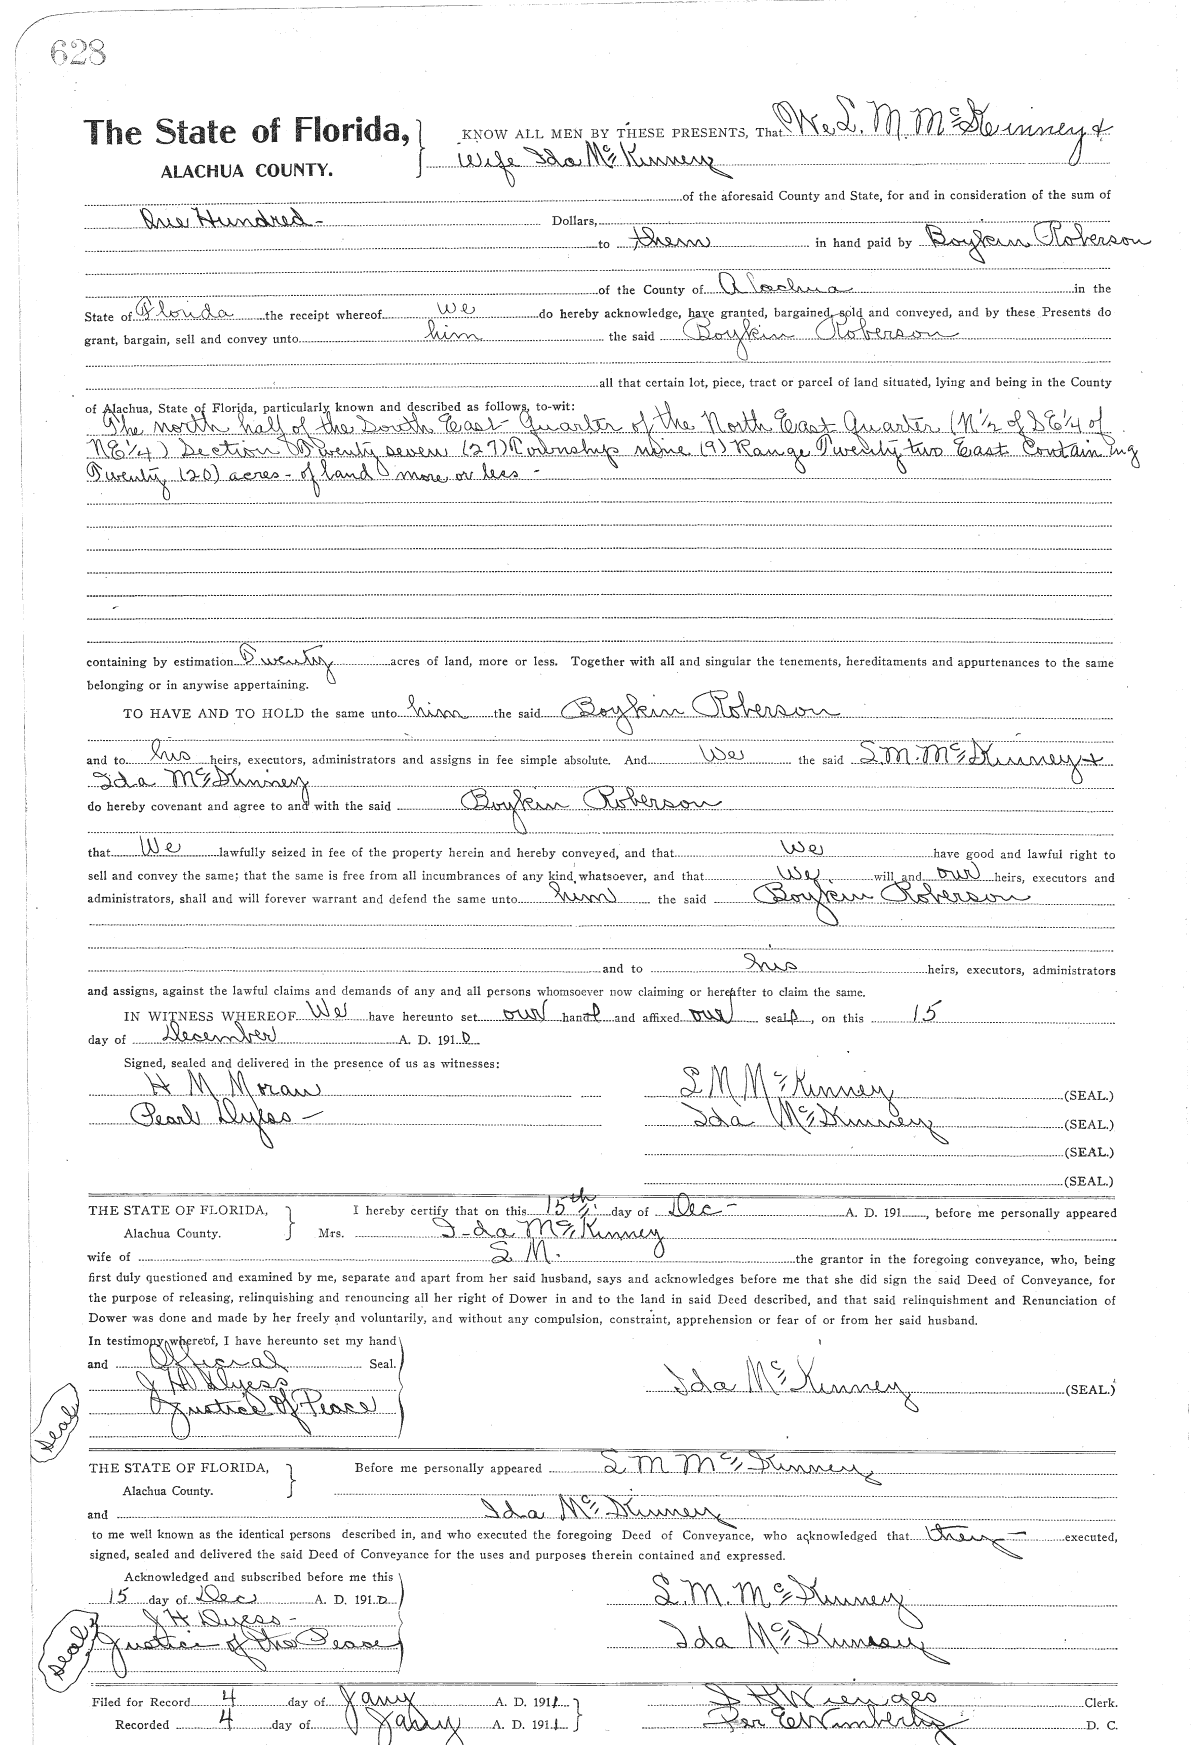 628
The State of Florida,
ALACHUA COUNTY.
KNOW ALL MEN BY THESE PRESENTS, That We S. M. McKinney &
Wife Ida McKinney
of the aforesaid County and State, for and in consideration of the sum of
One Hundred - Dollars,
to them in hand paid by Boykin Roberson
of the County of Alachua in the
State of Florida the receipt whereof we do hereby acknowledge, have granted, bargained, sold and conveyed, and by these Presents do
grant, bargain, sell and convey unto him the said Boykin Roberson
all that certain lot, piece, tract or parcel of land situated, lying and being in the County
of Alachua, State of Florida, particularly known and described as follows, to-wit:
The north half of the South East Quarter of the North East Quarter (N½ of SE¼ of
NE¼) Section Twenty seven (27) Township nine (9) Range Twenty two East Containing
Twenty (20) acres - of land more or less -
containing by estimation Twenty acres of land, more or less. Together with all and singular the tenements, hereditaments and appurtenances to the same
belonging or in anywise appertaining.
TO HAVE AND TO HOLD the same unto him the said Boykin Roberson
and to his heirs, executors, administrators and assigns in fee simple absolute. And We the said S. M. McKinney &
Ida McKinney
do hereby covenant and agree to and with the said Boykin Roberson
that We lawfully seized in fee of the property herein and hereby conveyed, and that we have good and lawful right to
sell and convey the same; that the same is free from all incumbrances of any kind whatsoever, and that we will and our heirs, executors and
administrators, shall and will forever warrant and defend the same unto him the said Boykin Roberson
and to his heirs, executors, administrators
and assigns, against the lawful claims and demands of any and all persons whomsoever now claiming or hereafter to claim the same.
IN WITNESS WHEREOF We have hereunto set our hand and affixed our seals, on this 15
day of December A. D. 1910
Signed, sealed and delivered in the presence of us as witnesses:
H M Moran S M McKinney (SEAL.)
Pearl Dyess - Ida McKinney (SEAL.)
(SEAL.)
(SEAL.)
THE STATE OF FLORIDA,
Alachua County.
I hereby certify that on this 15th day of Dec - A. D. 191, before me personally appeared
Mrs. Ida McKinney
wife of S M. the grantor in the foregoing conveyance, who, being
first duly questioned and examined by me, separate and apart from her said husband, says and acknowledges before me that she did sign the said Deed of Conveyance, for
the purpose of releasing, relinquishing and renouncing all her right of Dower in and to the land in said Deed described, and that said relinquishment and Renunciation of
Dower was done and made by her freely and voluntarily, and without any compulsion, constraint, apprehension or fear of or from her said husband.
In testimony whereof, I have hereunto set my hand
and Official Seal.
J H Dyess
Justice Of Peace
Ida McKinney (SEAL.)
Seal
THE STATE OF FLORIDA,
Alachua County.
Before me personally appeared S M McKinney
and Ida McKinney
to me well known as the identical persons described in, and who executed the foregoing Deed of Conveyance, who acknowledged that they - executed,
signed, sealed and delivered the said Deed of Conveyance for the uses and purposes therein contained and expressed.
Acknowledged and subscribed before me this
15 day of Dec A. D. 1910
J H Dyess -
Justice of the Peace
Seal
S. M. McKinney
Ida McKinney
Filed for Record 4 day of Jany A. D. 1911 S H Wienges Clerk.
Recorded 4 day of Jany A. D. 1911 Per E Wimberly D. C.